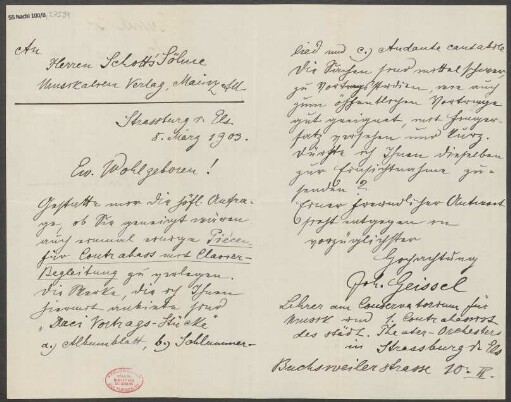 55 Nachl 100/B,
An
Herren Schott's Söhne
Musikalien Verlag, Mainz a/Rh
Strassburg i. Els.
8. März 1903.
Ew. Wohlgeboren!
Gestatte mir die höfl. Anfra-
ge, ob Sie geneigt wären
auch einmal einige Piècen
für Contrabass mit Clavier-
Begleitung zu verlegen.
Die Werke, die ich Ihnen
hiermit anbiete sind
„Drei Vortrags-Stücke“
a.) Albumblatt, b.) Schlummer-
lied und c.) Andante cantabile
Die Sachen sind mittelschwer,
zu Vortragsstudien, wie auch
zum öffentlichen Vortrage
gut geeignet, mit Finger-
satz versehen und kurz.
Dürfte ich Ihnen dieselben
zur Einsichtnahme zu-
senden?
Einer freundlichen Antwort
sieht entgegen in
vorzüglichster
Hochachtung
Joh. Geissel
Lehrer am Conservatorium für
Musik und I. Contrabassist
des städt. Theater-Orchesters
in Strassburg i. Els
Buchsweilerstrasse 10. III.